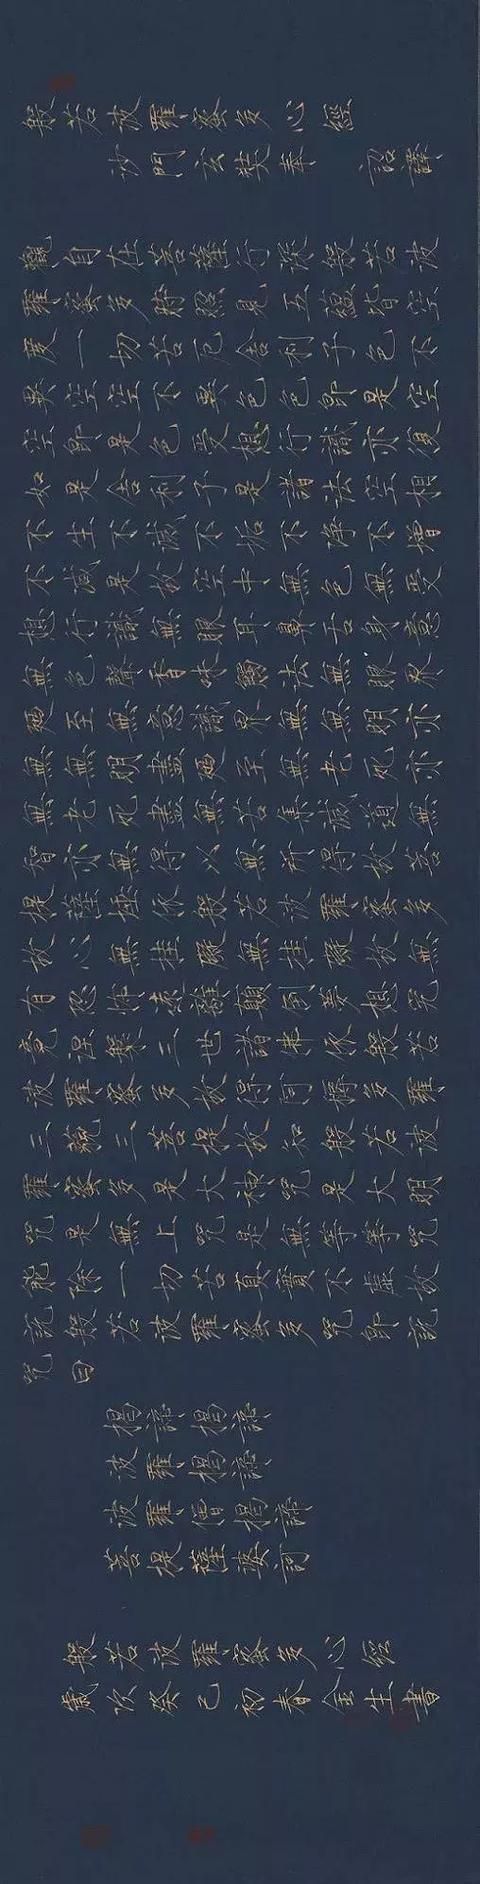 般若波羅蜜多心經
沙門玄奘奉 詔譯
觀自在菩薩行深般若波
羅蜜多時照見五蘊皆空
度一切苦厄舍利子色不
異空空不異色色即是空
空即是色受想行識亦復
如是舍利子是諸法空相
不生不滅不垢不淨不增
不減是故空中無色無受
想行識無眼耳鼻舌身意
無色聲香味觸法無眼界
廼至無意識界無無明亦
無無明盡廼至無老死亦
無老死盡無苦集滅道無
智亦無得以無所得故菩
提薩埵依般若波羅蜜多
故心無挂礙無挂礙故無
有恐怖遠離顛倒夢想究
竟涅槃三世諸佛依般若
波羅蜜多故得阿耨多羅
三藐三菩提故知般若波
羅蜜多是大神咒是大明
咒是無上咒是無等等咒
能除一切苦真實不虛故
說般若波羅蜜多咒即說
咒曰
揭諦揭諦
波羅揭諦
波羅僧揭諦
菩提薩婆訶
般若波羅蜜多心經
歲次癸巳初春金生書